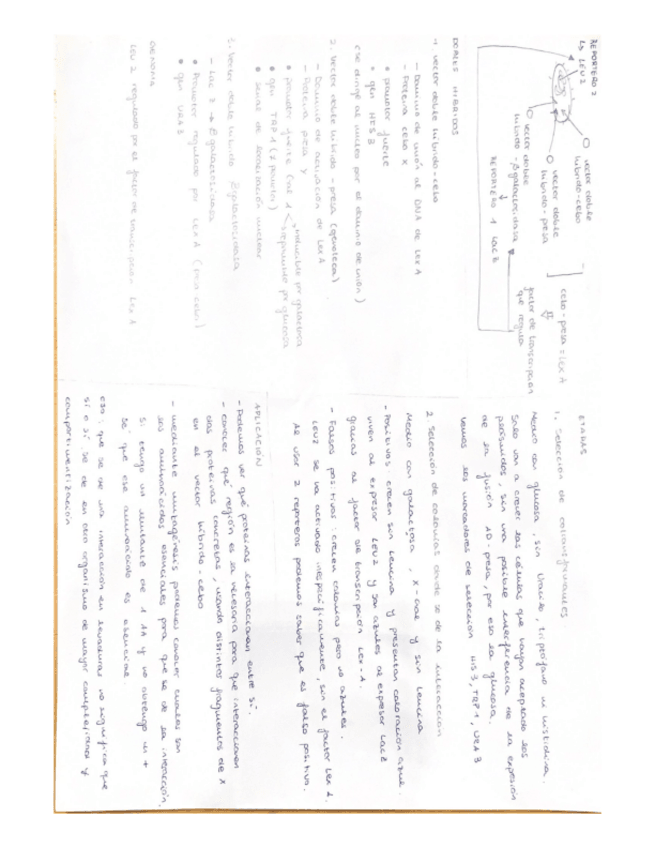 REPORTERO 2
↳ LEU2
vector doble
híbrido-cebo
vector doble
híbrido-presa
vector doble
híbrido-βgalactosidasa
REPORTERO 1 Lac Z
cebo-presa = Lex A
factor de transcripción
que regula
DOBLES HÍBRIDOS
1. vector doble híbrido-cebo
- Dominio de unión al DNA de Lex A
- Proteína cebo X
• promotor fuerte
• gen HIS3
(se dirige al núcleo por el dominio de unión)
2. Vector doble híbrido-presa (genoteca)
- Dominio de activación de Lex A
- Proteína presa Y
• promotor fuerte Gal 1
inducible por galactosa
reprimible por glucosa
• gen TRP1
• señal de localización nuclear
3. Vector doble híbrido βgalactosidasa
- Lac Z → βgalactosidasa
• Promotor regulado por Lex A
• gen URA3
GENOMA
LEU 2 regulado por el factor de transcripción Lex A
ETAPAS
1. Selección de cotransformantes
Medio con glucosa, sin Uracilo, triptófano ni histidina.
Solo van a crecer las células que hayan aceptado los
plásmidos, sin una posible interferencia de la expresión
de la fusión AD-presa, por eso la glucosa.
Vemos los marcadores de selección HIS3, TRP1, URA3
2. Selección de colonias donde se dé la interacción
Medio con galactosa, X-Gal y sin Leucina
- Positivos: crecen sin leucina y presentan coloración azul.
viven al expresar LEU2 y son azules al expresar Lac Z
gracias al factor de transcripción Lex A.
- Falsos positivos: crecen colonias pero no azules.
LEU2 se ha activado inespecíficamente, sin el factor Lex A.
Al usar 2 reporteros podemos saber que es falso positivo.
APLICACIÓN
- Podemos ver qué proteínas interaccionan entre sí.
- conocer qué región es la necesaria para que interaccionen
dos proteínas concretas, usando distintos fragmentos de X
en el vector híbrido-cebo
- mediante mutagénesis podemos conocer cuáles son
los aminoácidos esenciales para que se dé la interacción.
Si tengo un mutante de 1 AA y no obtengo un +
sé que ese aminoácido es esencial.
que se dé una interacción en levaduras no significa que
sí o sí se dé en otro organismo de mayor complejidad y
compartimentización